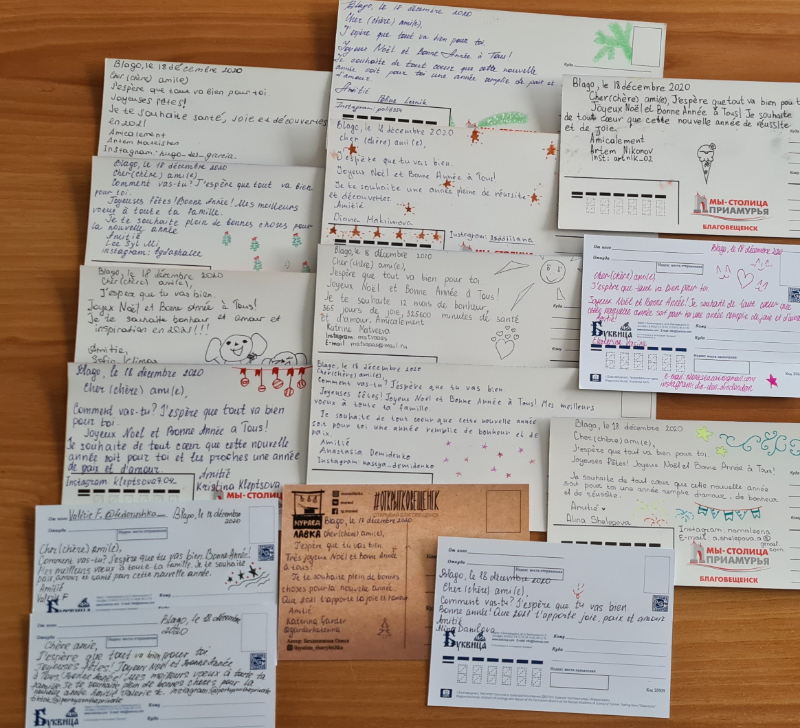 Blago, le 18 décembre 2020
Cher (chère) ami(e),
J'espère que tout va bien pour toi.
Joyeuses fêtes!
Je te souhaite santé, joie et découvertes
en 2021
Amicalement
Artem
Instagram: hugo_des_garcia.
Blago, le 18 décembre 2020
Cher (chère) ami(e),
J'espère que tout va bien pour toi.
Joyeux Noël et Bonne Année à Tous!
Je souhaite de tout cœur que cette nouvelle
année soit pour toi une année remplie de paix et
d'amour.
Amitié
Instagram:
Куда
Blago, le 18 décembre 2020
Cher (chère) ami(e), J'espère que tout va bien pour t
Joyeux Noël et Bonne Année à Tous! Je souhaite
de tout cœur que cette nouvelle année de réussite
et de joie.
Amicalement
Artem Nikonov
Inst: artnik_02
МЫ-СТОЛИЦА
ПРИАМУРЬЯ
БЛАГОВЕЩЕНСК
Blago, le 18 décembre 2020
Cher (chère) ami(e),
J'espère que tu vas bien.
Joyeux Noël et Bonne Année à Tous!
Je te souhaite une année pleine de réussite
et découvertes
Amitié
Diana
Instagram:
Blago, le 18 décembre 2020
Cher (chère) ami(e),
Comment vas-tu? J'espère que tout va bien
pour toi.
Joyeuses fêtes! Bonne Année! Mes meilleurs
voeux à toute ta famille.
Je te souhaite plein de bonnes choses pour
la nouvelle année
Amitié
Instagram:
Blago, le 18 décembre 2020
Cher (chère) ami(e),
J'espère que tout va bien pour toi
Joyeux Noël et Bonne Année à Tous!
Je te souhaite 12 mois de bonheur,
365 jours de joie, 525600 minutes de santé
Et d'amour. Amicalement
Katrine Matveeva
Instagram
E-mail
Blago, le 18 décembre 2020
Cher (chère) ami(e),
J'espère que tout va bien pour toi.
Joyeux Noël et Bonne Année! Je souhaite de tout cœur que
cette nouvelle année soit pour toi une année remplie de joie et d'amour
Буквица
Кому
Куда
Blago, le 18 décembre 2020
Cher (chère) ami(e),
J'espère que tu vas bien.
Joyeux Noël et Bonne Année à Tous!
Je te souhaite bonheur et amour et
inspiration en 2021!!!
Amitié,
Blago, le 18 décembre 2020
Cher (chère) ami(e),
Comment vas-tu? J'espère que tout va bien
pour toi.
Joyeux Noël et Bonne Année à Tous!
Je souhaite de tout cœur que cette nouvelle
année soit pour toi et tes proches une année
de paix et d'amour.
Amitié
Kristina Kleptsova
Instagram kleptsova704
МЫ-СТОЛ
Blago, le 18 décembre 2020
Cher(chère) ami(e),
Comment vas-tu? J'espère que tu vas bien
Joyeuses fêtes! Joyeux Noël et Bonne Année à Tous! Mes meilleurs
voeux à toute ta famille
Je souhaite de tout cœur que cette nouvelle année
soit pour toi une année remplie de bonheur et de
paix
Amitié
Anastasia Demidenko
Instagram nasega_demidenko
Blago, le 18 décembre 2020
Cher (chère) ami(e),
J'espère que tout va bien pour toi.
Joyeuses fêtes! Joyeux Noël et Bonne Année à Tous!
Je souhaite de tout cœur que cette nouvelle année
soit pour toi une année remplie d'amour, de bonheur
et de réussite.
Amitié
Alina Shologova
Instagram:
E-mail:
МЫ-СТОЛИЦА
ПРИАМУРЬЯ
БЛАГОВЕЩЕНСК
От кого Valérie F. @fedorushka_
Откуда
Blago, le 18 décembre
2020
Cher (chère) ami(e),
Comment vas-tu? J'espère que tu vas bien. Bonne Année!
Mes meilleurs voeux à toute ta famille. Je te souhaite
paix, amour et santé pour cette nouvelle année.
Amitié
Valérie F
Буквица
#ОТКРЫТКОВЕЩЕНСК
МУРАВА
ЛАВКА
Blago, le 18 décembre 2020
Cher(chère) ami(e),
J'espère que tu vas bien.
Très joyeux Noël et Bonne Année
à tous!
Je te souhaite plein de bonnes
choses pour la nouvelle année.
Que 2021 t'apporte la joie et l'amour
Amitié
Katerina Garder
От кого
Откуда
Blago, le 18 décembre 2020
Cher (chère) ami(e),
Comment vas-tu? J'espère que tu vas bien
Bonne année! Que 2021 t'apporte joie, paix et amour
Amitié
Alina Danilova
Буквица
Кому
Куда
Откуда
Blago, le 18 décembre
2020
Chère amie,
J'espère que tout va bien pour toi
Joyeuses fêtes! Joyeux Noël et Bonne année
à Tous! Bonne année! Mes meilleurs voeux à toute ta
famille. Je te souhaite plein de bonnes choses pour la
nouvelle année Amitié Valerie
Буквица
Кому
Куда